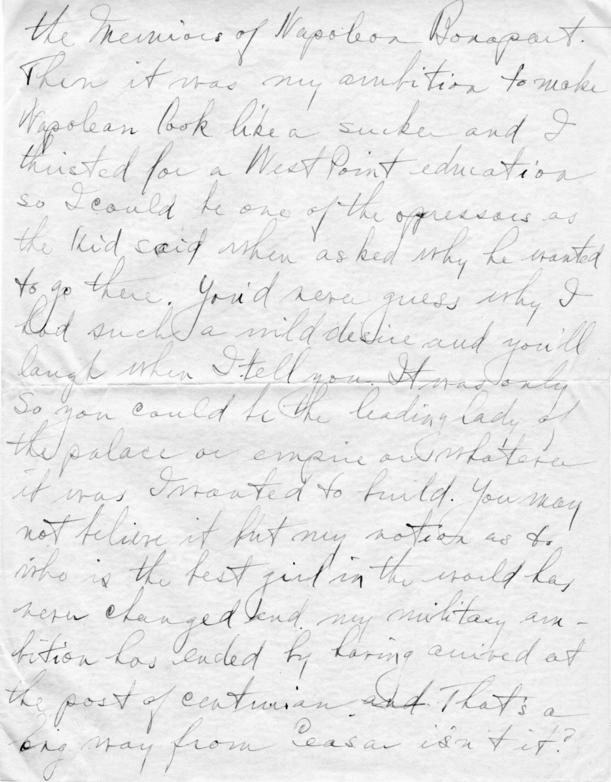 the Memiors of Napoleon Bonapart.
Then it was my ambition to make
Napolean look like a sucker and I
thirsted for a West Point education
so I could be one of the oppressors as
the kid said when asked why he wanted
to go there. You'd never guess why I
had such a wild desire and you'll
laugh when I tell you. It was only
so you could be the leading lady of
the palace or empire or whatever
it was I wanted to build. You may
not believe it but my notion as to
who is the best girl in the world has
never changed and my military am-
bition has ended by having arrived at
the post of centurian and. That's a
big way from Ceasar isn't it?